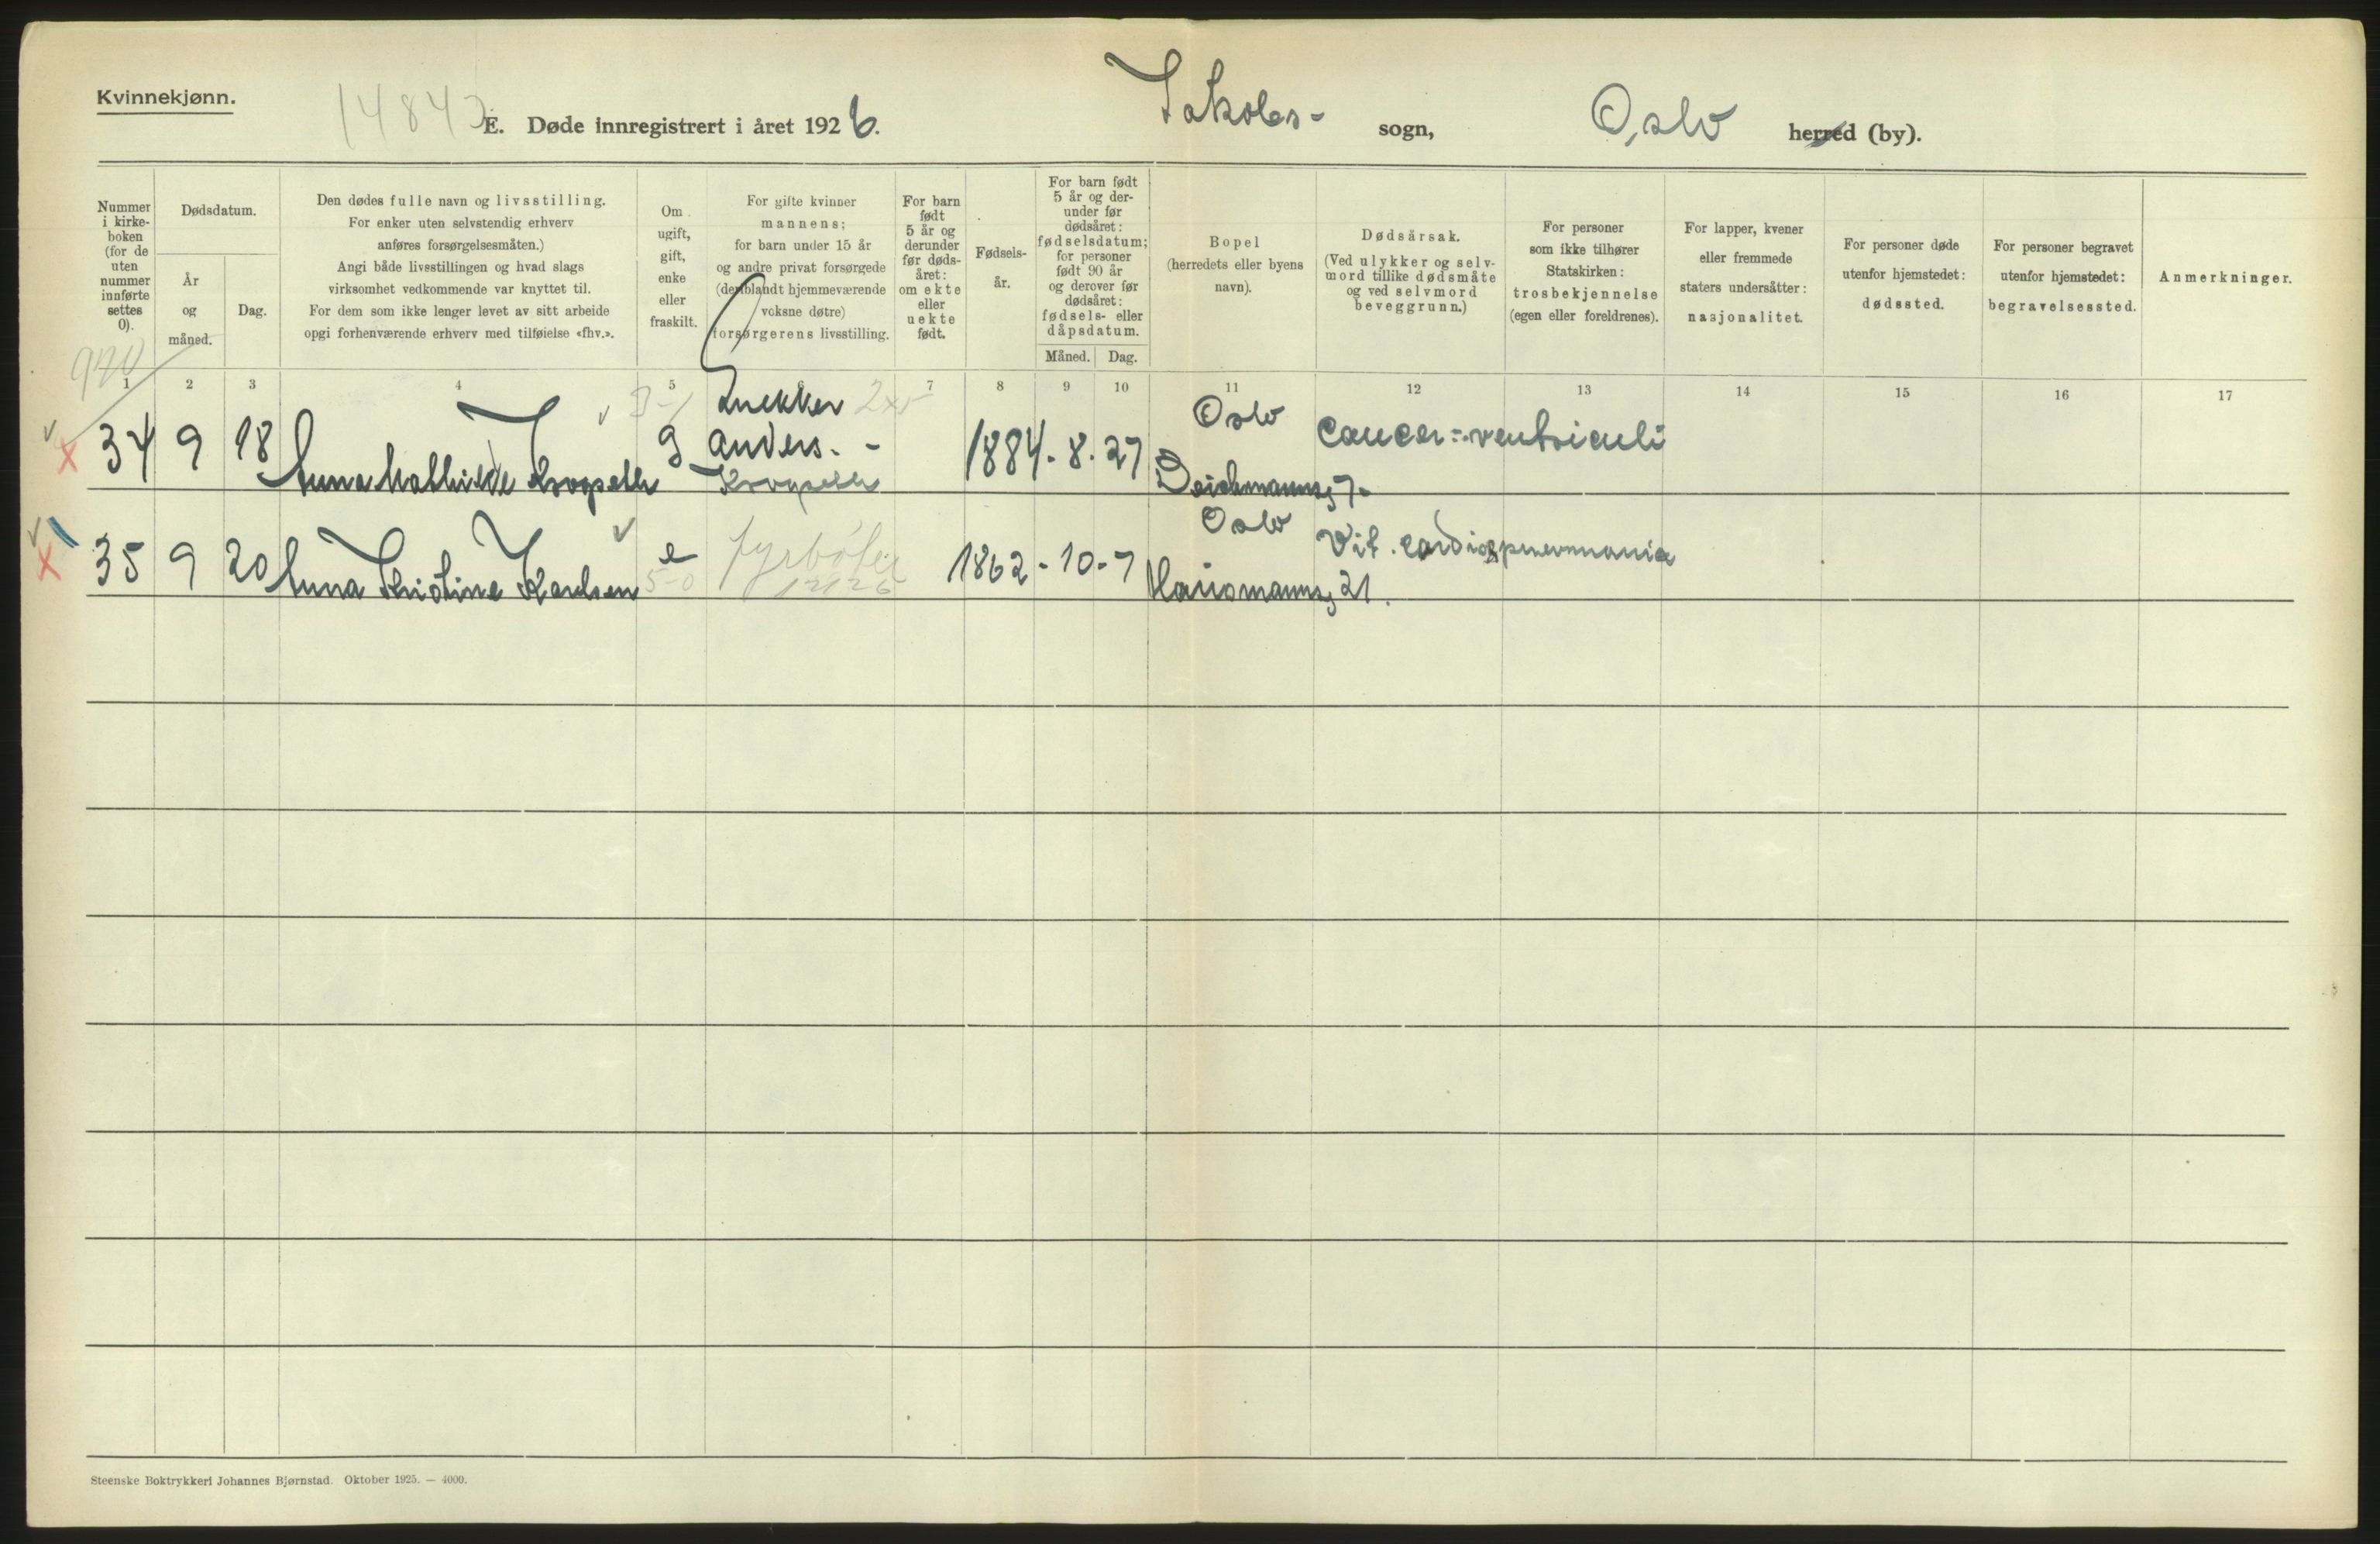 Kvinnekjønn.
E. Døde innregistrert i året 1926.
Jakobs- sogn,
Oslo herred (by).
Nummer
i kirke-
boken
(for de
uten
nummer
innførte
settes
0).
Dødsdatum.
År
og
måned.
Dag.
Den dødes fulle navn og livsstilling.
For enker uten selvstendig erhverv
anføres forsørgelsesmåten.)
Angi både livsstillingen og hvad slags
virksomhet vedkommende var knyttet til.
For dem som ikke lenger levet av sitt arbeide
opgi forhenværende erhverv med tilføielse «fhv.».
Om
ugift,
gift,
enke
eller
fraskilt.
For gifte kvinner
mannens;
for barn under 15 år
og andre privat forsørgede
(deriblandt hjemmeværende
voksne døtre)
forsørgerens livsstilling.
For barn
født
5 år og
derunder
før døds-
året:
om ekte
eller
uekte
født.
Fødsels-
år.
For barn født
5 år og der-
under før
dødsåret:
fødselsdatum;
for personer
født 90 år
og derover før
dødsåret:
fødsels- eller
dåpsdatum.
Måned.
Dag.
Bopel
(herredets eller byens
navn).
Dødsårsak.
(Ved ulykker og selv-
mord tillike dødsmåte
og ved selvmord
beveggrunn.)
For personer
som ikke tilhører
Statskirken:
trosbekjennelse
(egen eller foreldrenes).
For lapper, kvener
eller fremmede
staters undersåtter:
nasjonalitet.
For personer døde
utenfor hjemstedet:
dødssted.
For personer begravet
utenfor hjemstedet:
begravelsessted.
Anmerkninger.
1 2 3 4 5 6 7 8 9 10 11 12 13 14 15 16 17
Snekker
Oslo
34 9 18 Anna Mathilde Krogseth g Anders. - 1884 - 8 - 27 Cancer ventriculi
Krogseth
Deichmannsg 7.
Oslo
35 9 20 Anna Kristine Karlsen e fyrbøter 1862 - 10 - 7 Vit. cordis pneumonia
Hausmannsg 21.
Steenske Boktrykkeri Johannes Bjørnstad. Oktober 1925. — 4000.